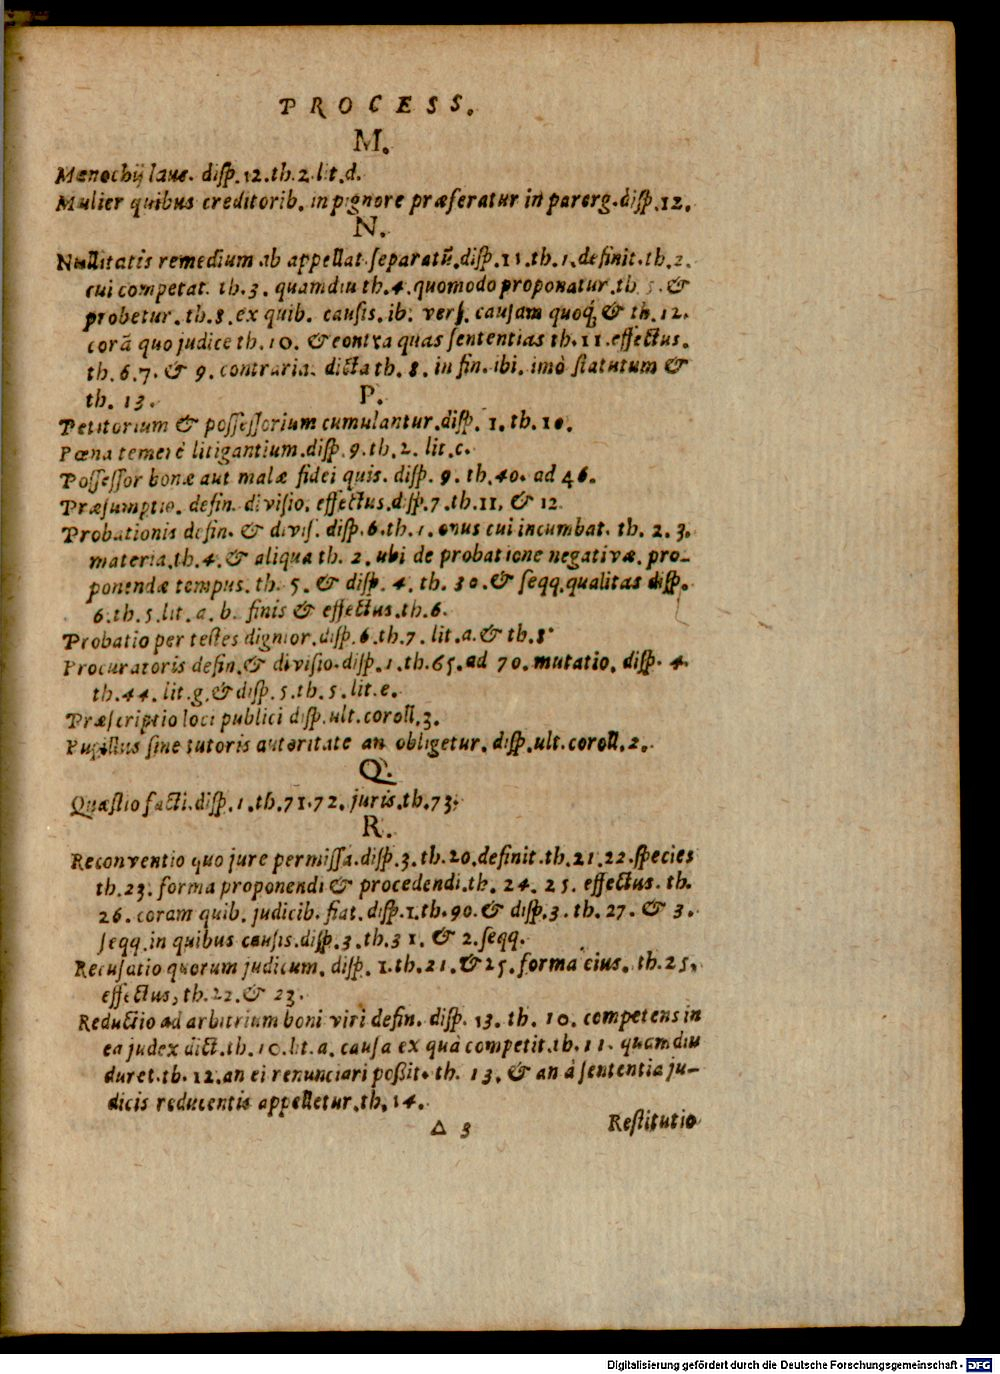 PROCESS.
M.
Menochij laus. disp.12.th.2.lit.d.
Mulier quibus creditorib. in pignore præferatur in parerg.disp.12.
N.
Nullitatis remedium ab appellat.separatū.disp.11.th.1.definit.th.2.
cui competat. th.3. quamdiu th.4.quomodo proponatur.th.5.&
probetur.th.8.ex quib. causis.ib. vers. causam quoq; & th.12.
corā quo judice th.10. & contra quas sententias th.11.effectus.
th.6.7. & 9. contraria. dicta th. 8. in fin. ibi. imò statutum &
th. 13.
P.
Petitorium & possessorium cumulantur.disp. 1. th. 10.
Pœna temerè litigantium.disp.9.th.2. lit.c.
Possessor bonæ aut malæ fidei quis. disp. 9. th.40. ad 46.
Præsumptio. defin. divisio. effectus.disp.7.th.11. & 12.
Probationis defin. & divis. disp.6.th.1.onus cui incumbat. th. 2.3.
materia.th.4.& aliqua th. 2. ubi de probatione negativæ. pro-
ponendæ tempus. th. 5. & disp. 4. th. 30.& seqq.qualitas disp.
6.th.5.lit. a. b. finis & effectus.th.6.
Probatio per testes dignior.disp.6.th.7. lit.a.& th.8.
Procuratoris defin.& divisio.disp.1.th.65.ad 70. mutatio. disp. 4.
th.44. lit.g.& disp.5.th.5.lit.e.
Præscriptio loci publici disp.ult.coroll.3.
Pupillus sine tutoris autoritate an obligetur. disp.ult.coroll.2.
Q.
Quæstio facti.disp.1.th.71.72. juris.th.73.
R.
Reconventio quo jure permissa.disp.3.th.20.definit.th.21.22.species
th.23. forma proponendi & procedendi.th. 24. 25. effectus. th.
26. coram quib. judicib. fiat. disp.1.th.90.& disp.3.th.27. & 3.
seqq.in quibus causis.disp.3.th.31. & 2.seqq.
Recusatio quorum judicum. disp. 1.th.21.& 25.forma eius. th.25.
effectus, th.22.& 23.
Reductio ad arbitrium boni viri defin. disp. 13. th. 10. competens in
ea judex dict.th.10.lit.a. causa ex quâ competit.th.11. quamdiu
duret.th.12.an ei renunciari poßit. th. 13. & an à sententia ju-
dicis reducentis appelletur.th.14.
△ 3 Restitutio
Digitalisierung gefördert durch die Deutsche Forschungsgemeinschaft - DFG